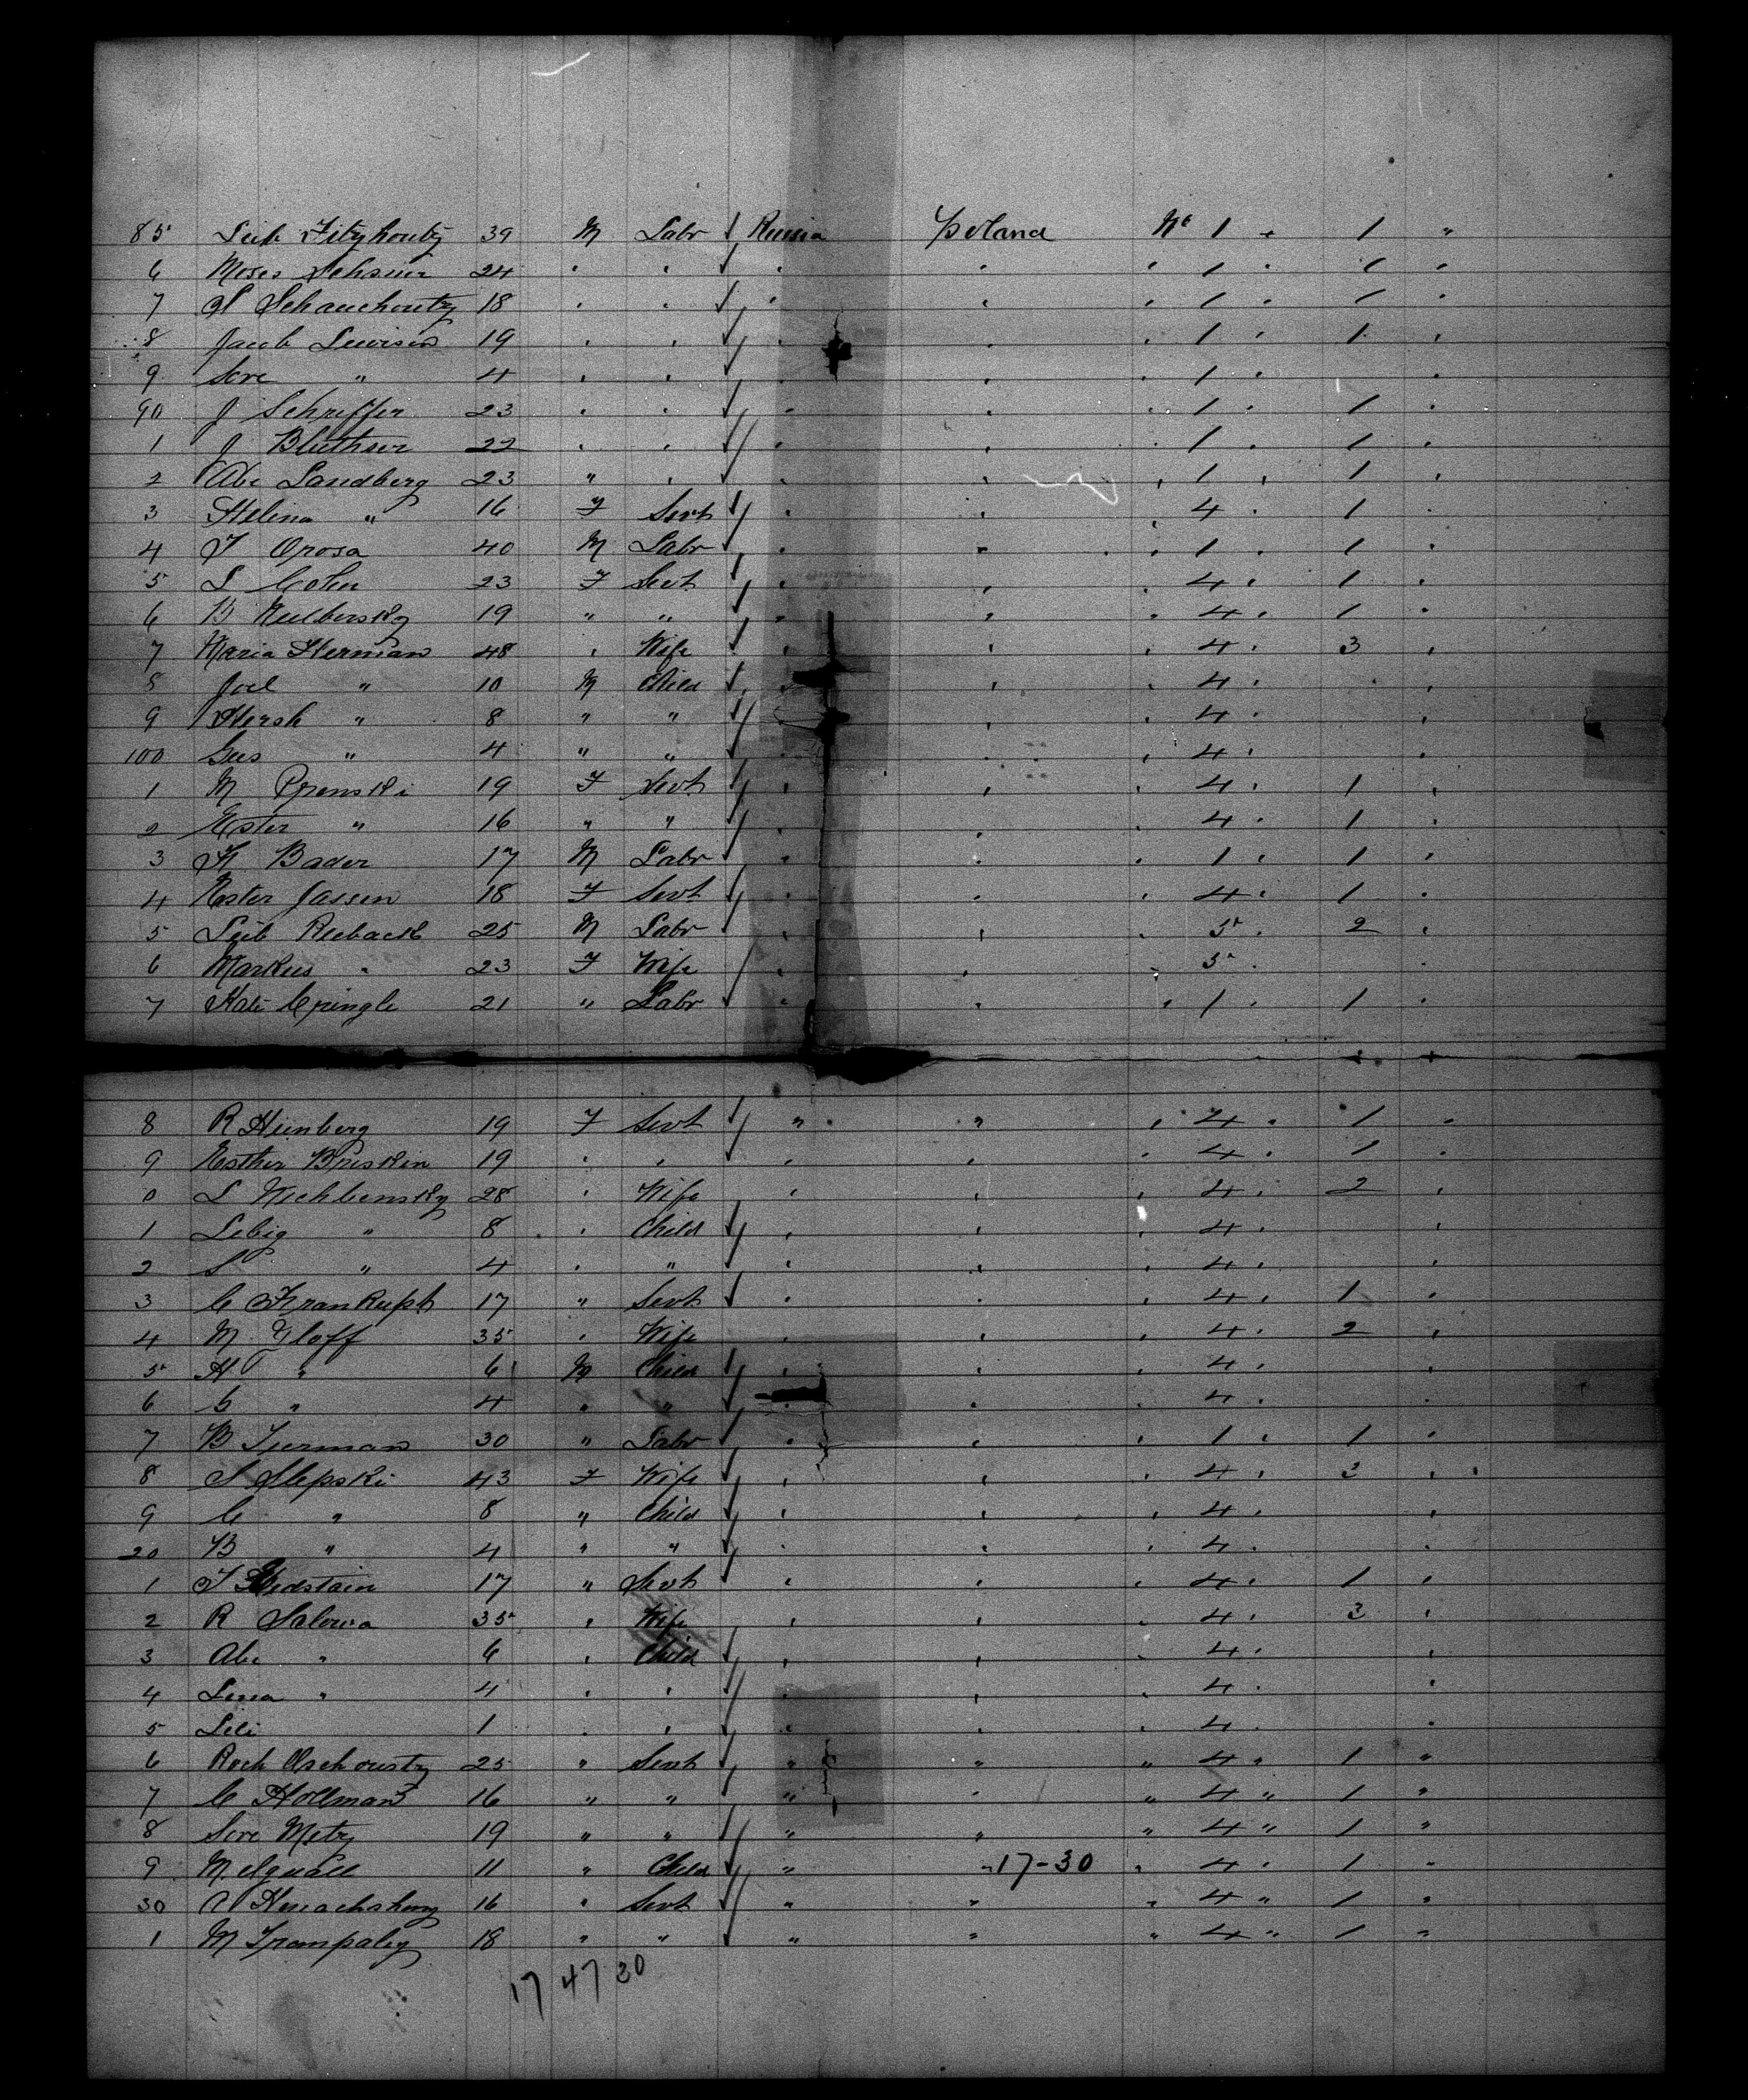 85 Leib Fitzhoutz 39 M Labr ✓ Russia Poland No 1 " 1 "
6 Moses 24 " " ✓ " " " 1 " 1 "
7 S Schauchoutz 18 " " ✓ " " " 1 " 1 "
8 Jacob Lewisen 19 " " ✓ " " " 1 " 1 "
9 Sore " 4 " " ✓ " " " 1 " "
90 J Schriffer 23 " " ✓ " " " 1 " 1 "
1 J Bluthser 22 " " ✓ " " " 1 " 1 "
2 Abe Sandberg 23 " " ✓ " " " 1 " 1 "
3 Helina " 16 F Servt ✓ " " " 4 " 1 "
4 F Orosa 40 M Labr ✓ " " " 1 " 1 "
5 L Cohn 23 F Servt ✓ " " " 4 " 1 "
6 B 19 " " ✓ " " " 4 " 1 "
7 Maria Herman 48 " Wife ✓ " " " 4 " 3 "
8 Joel " 10 M Child ✓ " " " 4 " "
9 Hersh " 8 " " ✓ " " " 4 " "
100 Gus " 4 " " ✓ " " " 4 " "
1 M Prenski 19 F Servt ✓ " " " 4 " 1 "
2 Ester " 16 " " ✓ " " " 4 " 1 "
3 H Bader 17 M Labr ✓ " " " 1 " 1 "
4 Ester Jassen 18 F Servt ✓ " " " 4 " 1 "
5 Leib 25 M Labr ✓ " " " 5 " 2 "
6 Markus " 23 F Wife " " " 5 " "
7 Kate Cringle 21 " Labr ✓ " " " 1 " 1 "
8 R Heinberg 19 F Servt ✓ " " " 4 " 1 "
9 Esther Briskin 19 " " ✓ " " " 4 " 1 "
0 L 28 " Wife " " " 4 " 2 "
1 Lebig " 8 " Child ✓ " " " 4 " "
2 S " 4 " " ✓ " " " 4 " "
3 C 17 " Servt ✓ " " " 4 " 1 "
4 M Gloff 35 " Wife " " " 4 " 2 "
5 H " 6 M Child ✓ " " " 4 " "
6 G " 4 " " ✓ " " " 4 " "
7 B 30 " Labr ✓ " " " 1 " 1 "
8 S Slepski 43 F Wife ✓ " " " 4 " 3 "
9 C " 8 " Child ✓ " " " 4 " "
20 B " 4 " " ✓ " " " 4 " "
1 F 17 " Servt ✓ " " " 4 " 1 "
2 R Salowa 35 " Wife " " " 4 " 3 "
3 Abe " 6 " Child ✓ " " " 4 " "
4 Lena " 4 " " ✓ " " " 4 " "
5 Lili 1 " " ✓ " " " 4 "
6 Roch 25 " Servt ✓ " " " 4 " 1 "
7 C Hollman 16 " " ✓ " " " 4 " 1 "
8 Sore Metz 19 " " ✓ " " " 4 " 1 "
9 M 11 " Child ✓ " " 17-30 " 4 " 1 "
30 16 " Servt ✓ " " " 4 " 1 "
1 M 18 " " ✓ " " " 4 " 1 "
17 47 30